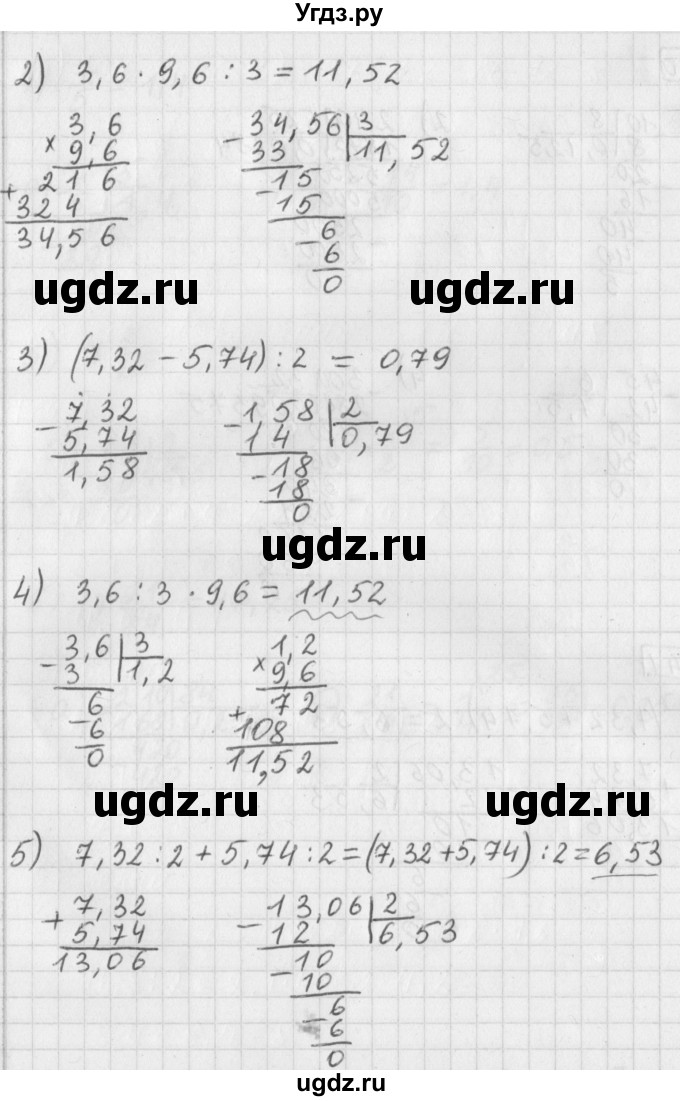 Угдз.ру
2) 3,6 · 9,6 : 3 = 11,52
3,6
× 9,6
+ 216
324
34,56
- 34,56 | 3
33 11,52
- 15
15
- 6
6
0
ugdz.ru ugdz.ru
3) (7,32 - 5,74) : 2 = 0,79
- 7,32
5,74
1,58
- 1,58 | 2
14 0,79
- 18
18
0
ugdz.ru
4) 3,6 : 3 · 9,6 = 11,52
- 3,6 | 3
3 1,2
- 6
6
0
1,2
× 9,6
+ 72
108
11,52
ugdz.ru ugdz.ru
5) 7,32 : 2 + 5,74 : 2 = (7,32 + 5,74) : 2 = 6,53
+ 7,32
5,74
13,06
- 13,06 | 2
12 6,53
- 10
10
- 6
6
0
ugdz.ru